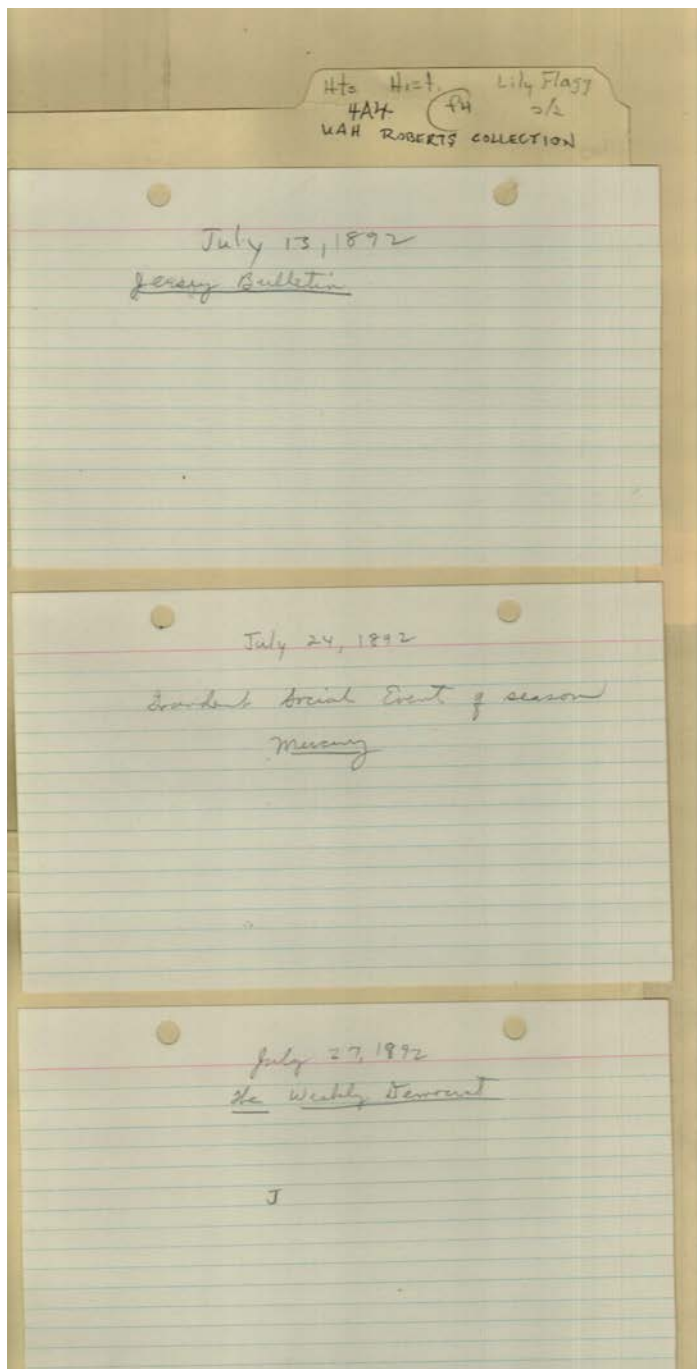 Hts Hist. Lily Flagg
4A4 f4 2/2
UAH ROBERTS COLLECTION
July 13, 1892
Jersey Bulletin
July 24, 1892
Grandest Social Event of season
Mercury
July 27, 1892
The Weekly Democrat
J